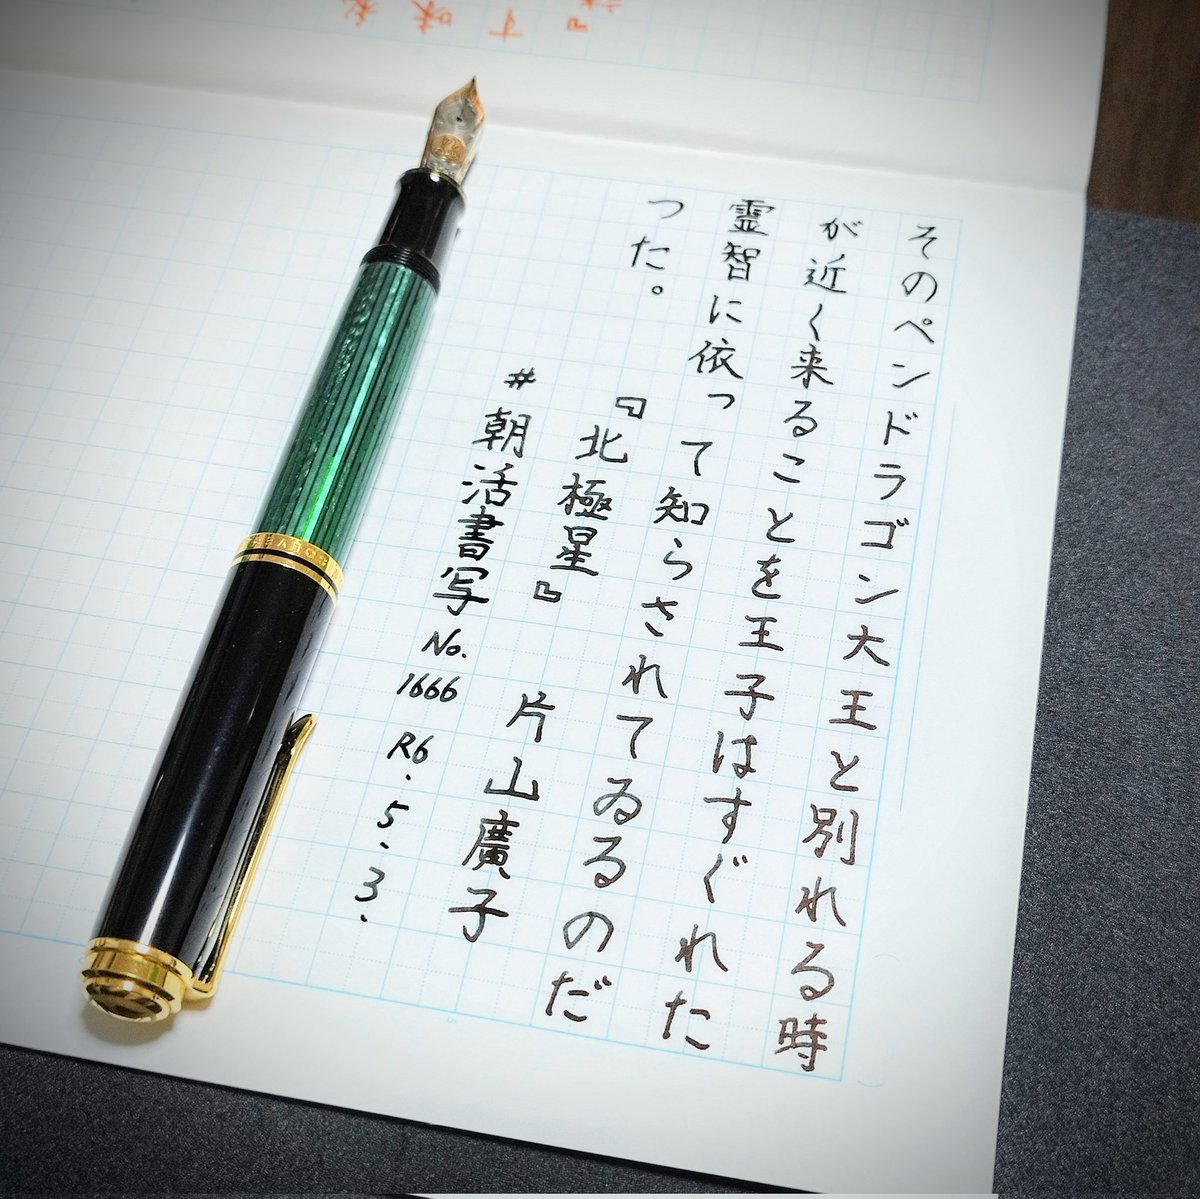 そのペンドラゴン大王と別れる時
が近く来ることを王子はすぐれた
霊智に依って知らされてゐるのだ
つた。
『北極星』 片山廣子
#朝活書写 No. 1666 R6.5.3.